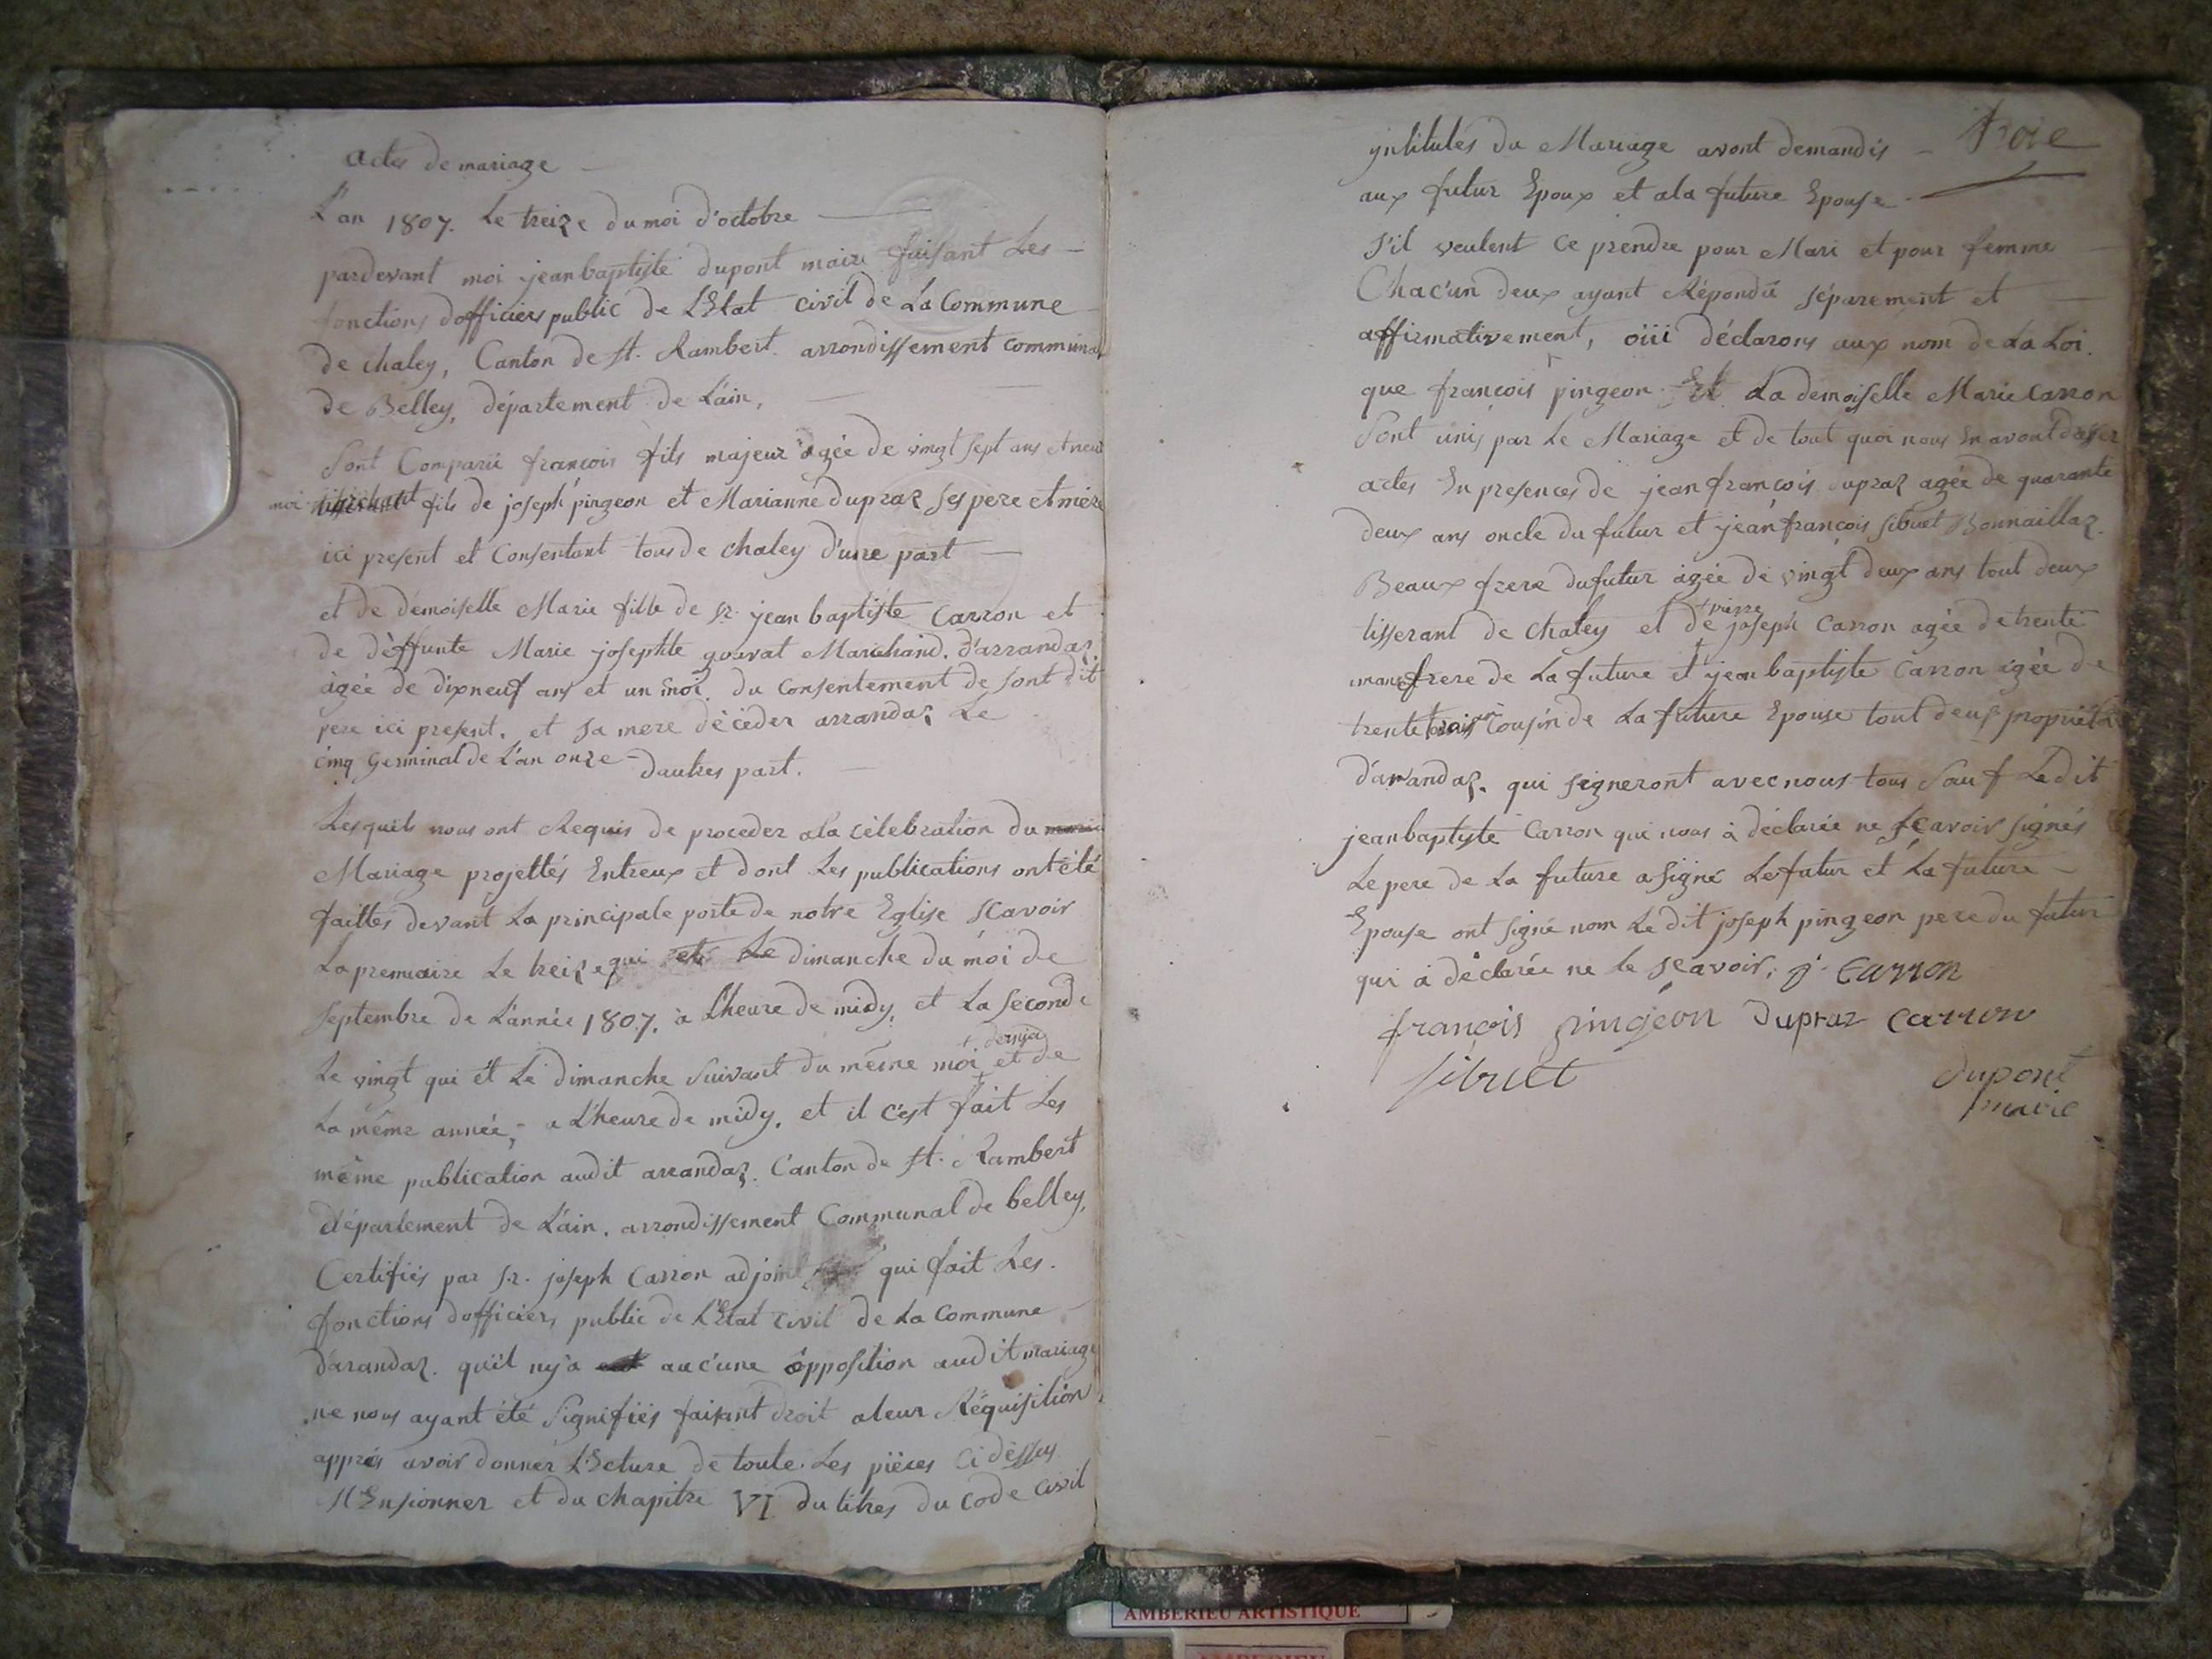 actes de mariage
L'an 1807. Le treize du moi d'octobre
pardevant moi jean baptiste dupont maire faisant Les
fonctions dofficiers public de L'Etat civil de La Commune
de chaley, Canton de St. Rambert. arrondissement communal
de Belley, département de L'ain,
Sont Comparu francois fils majeur agée de vingt sept ans et neuf
moi fils de joseph pingeon et Marianne dupraz Ses pere et mere
ici present et Consentant tous de chaley d'une part
et de demoiselle Marie fille de Sr. jean baptiste Carron et
de deffunte Marie josephte gouvat Marchand. d'arrandaz.
agée de dixneuf ans et un moi. du consentement de Sont dit
pere ici present. et Sa mere décéder arrandaz Le
cinq Germinal de L'an onze dautres part.
Lesquels nous ont Requis de proceder ala célebration du
Mariage projettés Entreux et dont Les publications ont été
faittes devant La principale porte de notre Eglise Scavoir
La premiaire Le treize qui et Le dimanche du moi de
septembre de L'année 1807. a L'heure de midy, et La Seconde
Le vingt qui ét Le dimanche Suivant du même moi dernier et de
La même année, a L'heure de midy. et il c'est fait Les
même publication audit arrandaz. Canton de St. Rambert
département de L'ain. arrondissement Communal de belley,
Certifiés par Sr. joseph Carron adjoint qui fait Les.
fonctions dofficiers public de L'Etat Civil de La Commune
d'arandaz. qu'il ny a aucune opposition audit mariage
ne nous ayant été Signifiés faisant droit aleur Réquisition
apprés avoir donner L'Ecture de toute Les pièces ci dessus
M'Ensionner et du chapitre VI du titres du Code Civil
yntitulés du Mariage avont demandis
aux futur Epoux et ala future Epouse
S'il veulent Ce prendre pour Mari et pour femme
Chacun deux ayant Répondu séparement et
affirmativement, oüi déclarons aux nom de La Loi.
que françois pingeon Et La demoiselle Marie Carron
Sont unis par Le Mariage et de tout quoi nous En avont dresser
actes En presences de jean françois dupraz agée de quarante
deux ans oncle du futur et jean françois sibuet Bonnaillaz.
Beaux frere du futur agée de vingt deux ans tout deux
tisserant de chaley et de pierre joseph Carron agée de trente
frere de La future et jean baptiste Carron agée de
trente Cousin de La future Epouse tout deux propriéta
d'arrandaz. qui signeront avec nous tous Sauf Ledit
jean baptiste Carron qui nous à déclarée ne Scavoir Signés
Le pere de La future a signé Le futur et La future
Epouse ont signé nom Le dit joseph pingeon pere du futur
qui à déclarée ne le scavoir. j. Carron
françois pingeon dupraz carron
Sibuet
dupont
maire
AMBERIEU ARTISTIQUE
AMBERIEU